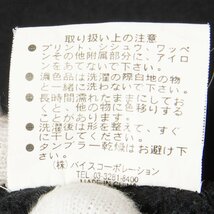 取り扱い上の注意
●プリント、シシュウ、ワッペ
ンその他附属部分に、アイロ
ンをあてないで下さい。
●濃色品は洗濯の際白地の物
と一緒に洗わないで下さい。
●長時間濡れたままにしてお
くと、他の物に色移りする
事があります。
●洗濯後は形を整えて、すぐ
に干してください。
●タンブラー乾燥はお避け下
さい。
(株)バイスコーポレーション
TEL 03-3281-8400
MADE IN CHINA